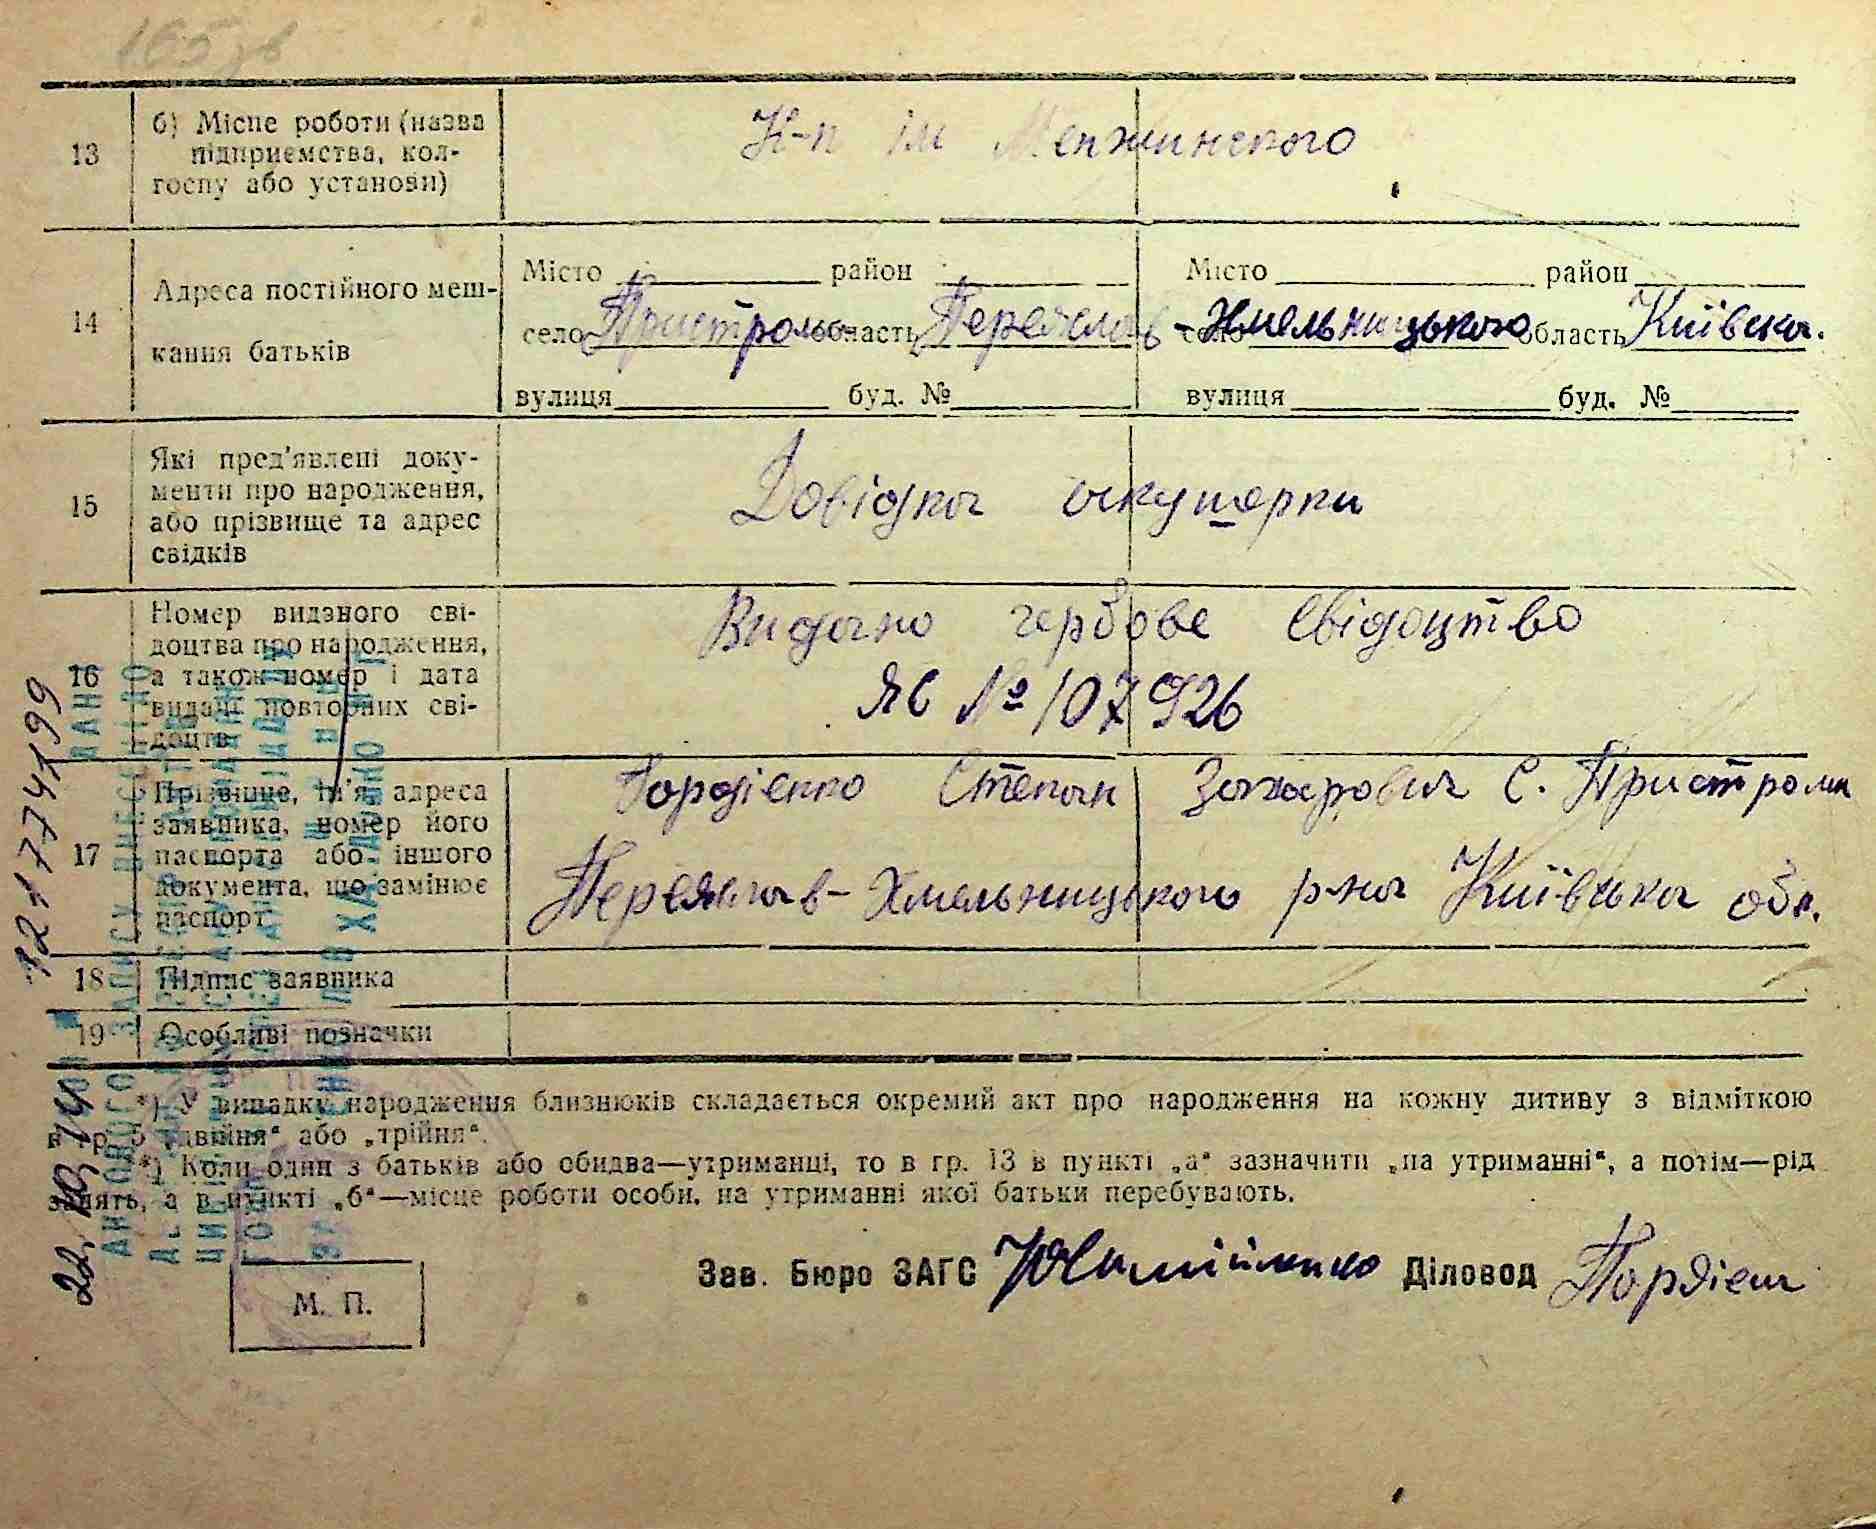 165 зв
13
б) Місце роботи (назва
підприємства, кол-
госпу або установи)
К-п ім Менжинского
14
Адреса постійного меш-
кання батьків
Місто район
село Пристроми область Переяслав
вулиця буд. №
Місто район
село -Хмельницького область Київська.
вулиця буд. №
15
Які пред'явлені доку-
менти про народження,
або прізвище та адрес
свідків
Довідка акушерки
16
Номер виданого сві-
доцтва про народження,
а також номер і дата
видачі повторних сві-
доцтв
Видано гербове Свідоцтво
ЯС № 107926
17
Прізвище, ім'я, адреса
заявника, номер його
паспорта або іншого
документа, що замінює
паспорт
Гордієнко Степан Захарович С. Пристроми
Переяслав-Хмельницького р-на Київська обл.
18 Підпис заявника
19 Особливі позначки
*) У випадку народження близнюків складається окремий акт про народження на кожну дитину з відміткою
в гр. 5 „двійня“ або „трійня“.
**) Коли один з батьків або обидва—утриманці, то в гр. 13 в пункті „а“ зазначити „на утриманні“, а потім—рід
занять, а в пункті „б“—місце роботи особи, на утриманні якої батьки перебувають.
Зав. Бюро ЗАГС Діловод Гордієн
М. П.
22.10.14
121774199